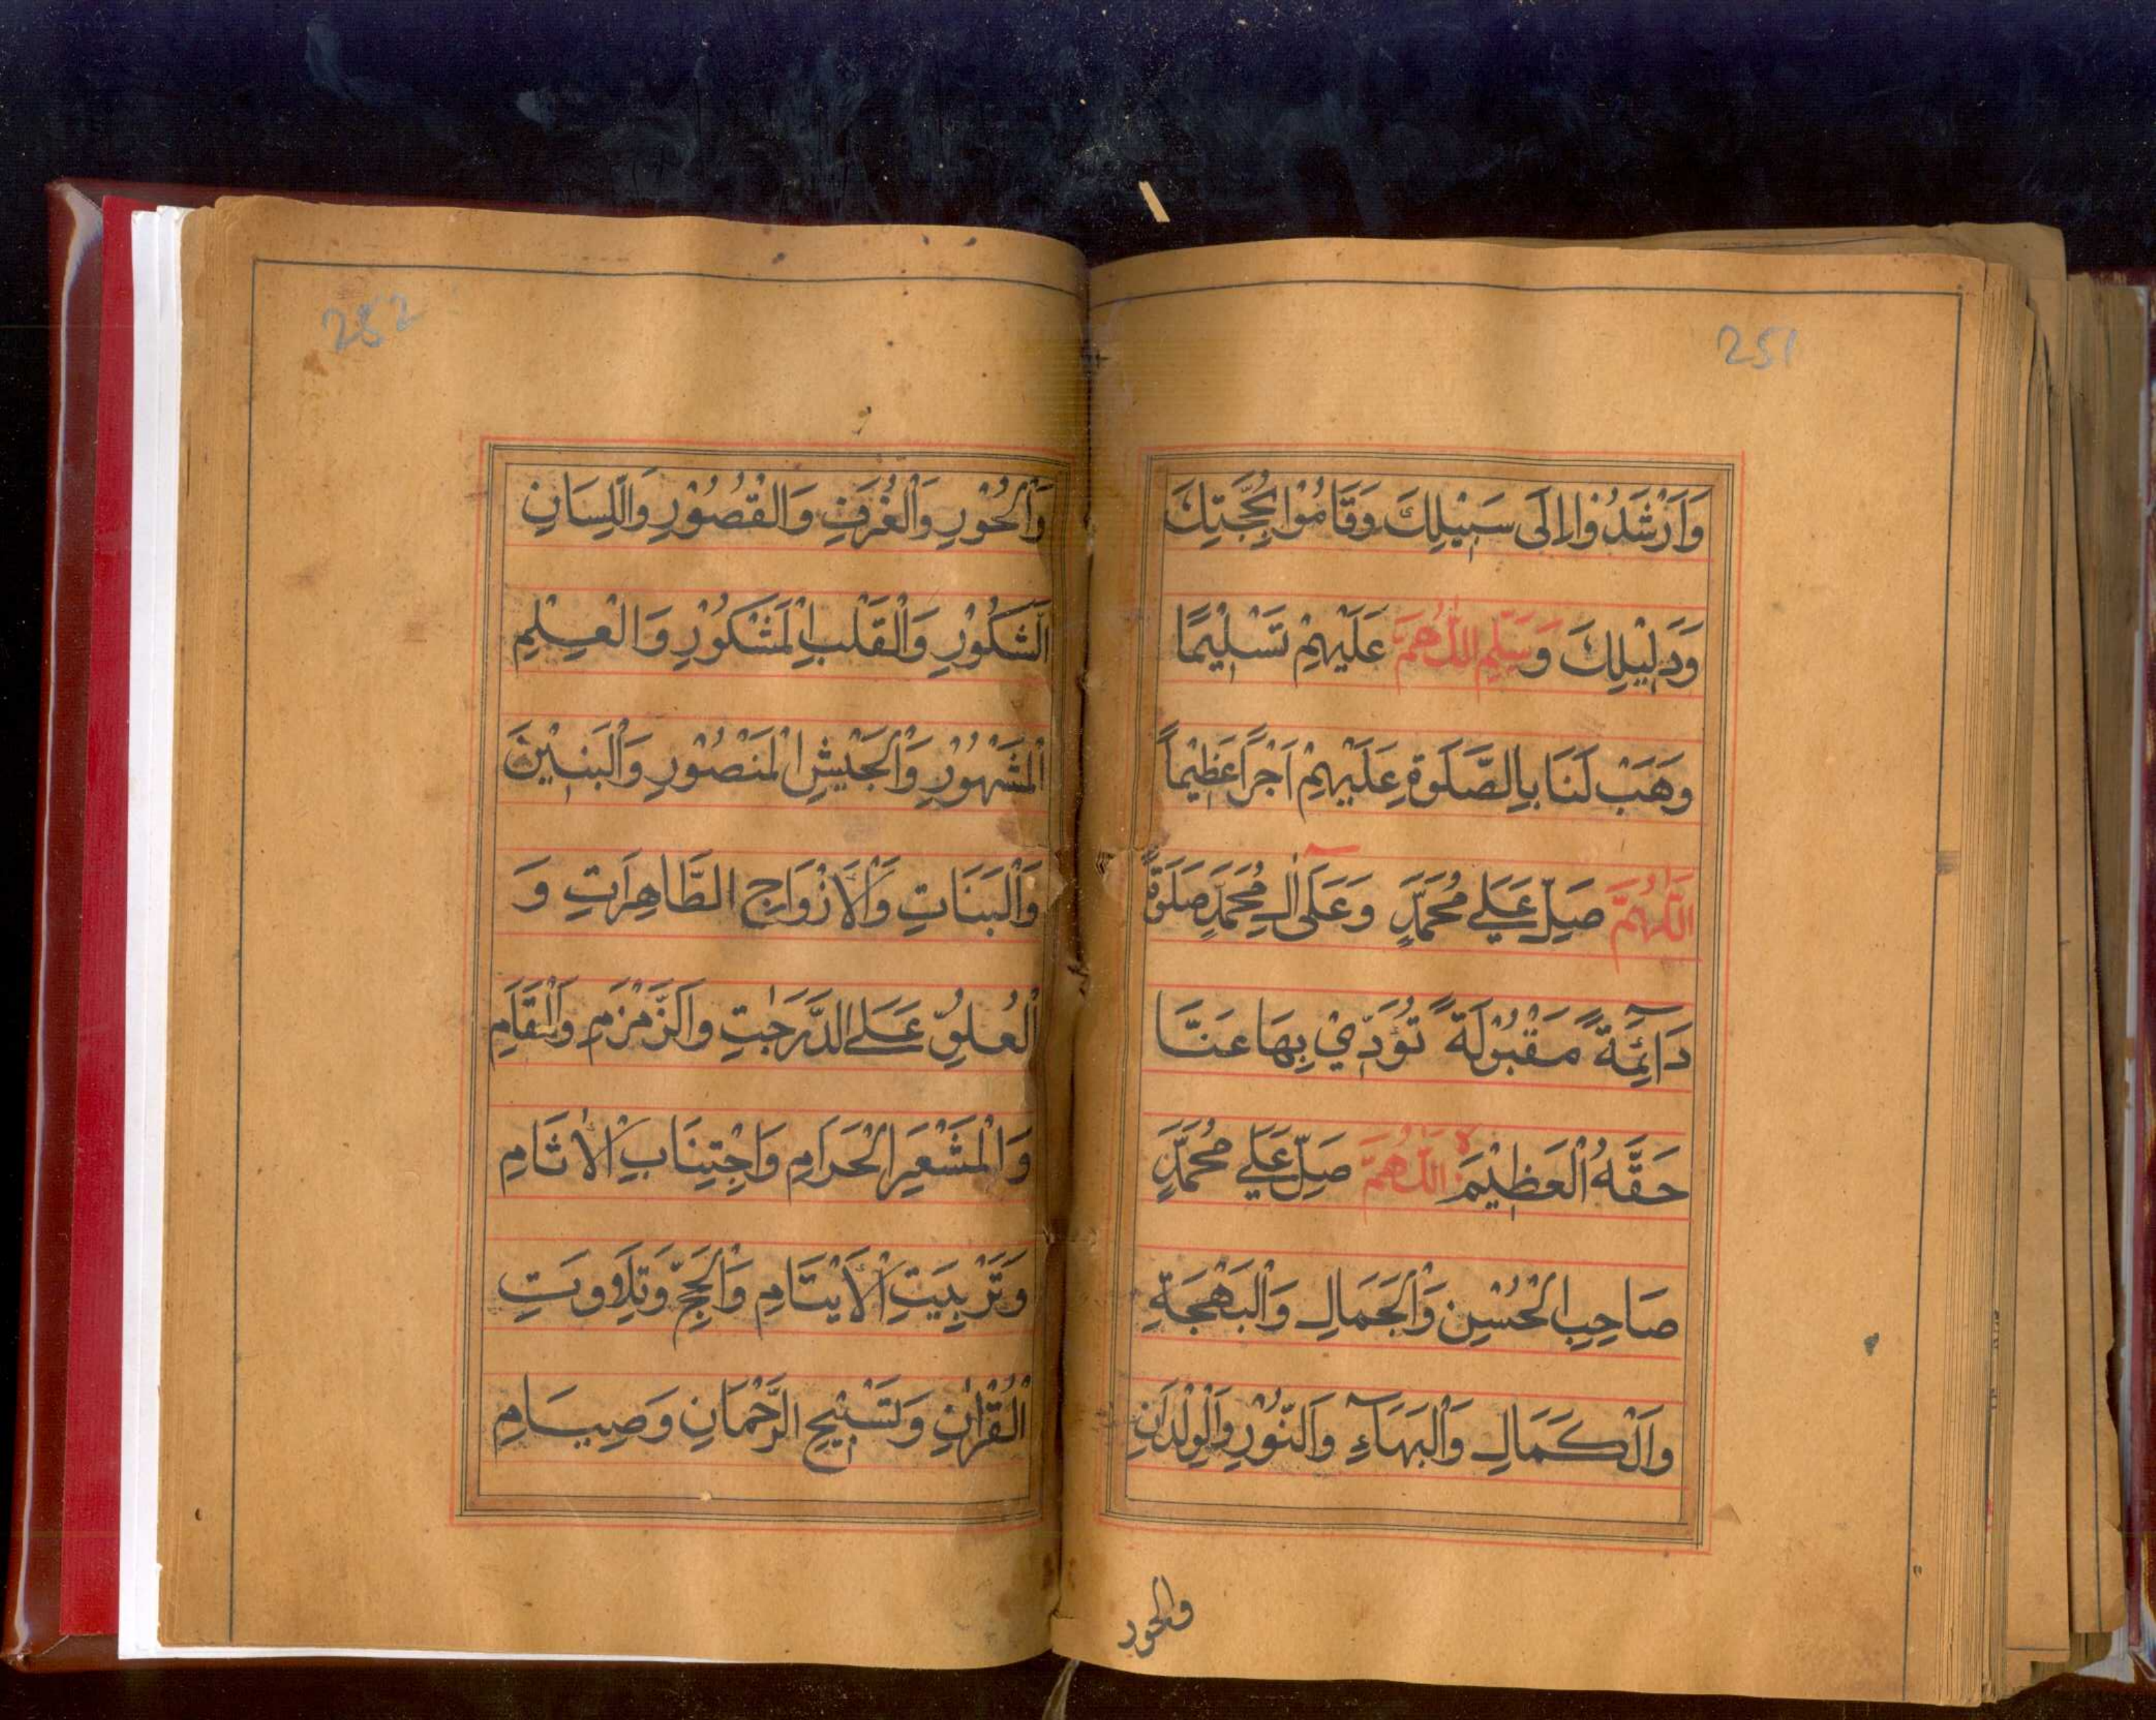 251
وَاَرْشَدُوْا اِلَى سَبِيْلِكَ وَقَامُوْا بِحُجَّتِكَ
وَدَلِيْلِكَ وَسَلِّمِ اللّٰهُمَّ عَلَيْهِمْ تَسْلِيْمًا
وَهَبْ لَنَا بِالصَّلَوةِ عَلَيْهِمْ اَجْرًا عَظِيْمًا
اَللّٰهُمَّ صَلِّ عَلٰى مُحَمَّدٍ وَعَلٰى اٰلِ مُحَمَّدٍ صَلَوةً
دَآئِمَةً مَقْبُوْلَةً تُؤَدِّيْ بِهَا عَنَّا
حَقَّهُ الْعَظِيْمَ اَللّٰهُمَّ صَلِّ عَلٰى مُحَمَّدٍ
صَاحِبِ الْحُسْنِ وَالْجَمَالِ وَالْبَهْجَةِ
وَالْكَمَالِ وَالْبَهَآءِ وَالنُّوْرِ وَالْوِلْدَانِ
والحور
252
وَالْحُوْرِ وَالْغُرَفِ وَالْقُصُوْرِ وَاللِّسَانِ
الشَّكُوْرِ وَالْقَلْبِ الْمَشْكُوْرِ وَالْعِلْمِ
الْمَشْهُوْرِ وَالْجَيْشِ الْمَنْصُوْرِ وَالْبَنِيْنَ
وَالْبَنَاتِ وَالْاَزْوَاجِ الطَّاهِرَاتِ وَ
الْعُلُوِّ عَلَى الدَّرَجٰتِ وَالزَّمْزَمِ وَالْمَقَامِ
وَالْمَشْعَرِ الْحَرَامِ وَاجْتِنَابِ الْاٰثَامِ
وَتَرْبِيَتِ الْاَيْتَامِ وَالْحَجِّ وَتِلَاوَتِ
الْقُرْاٰنِ وَتَسْبِيْحِ الرَّحْمَانِ وَصِيَامِ